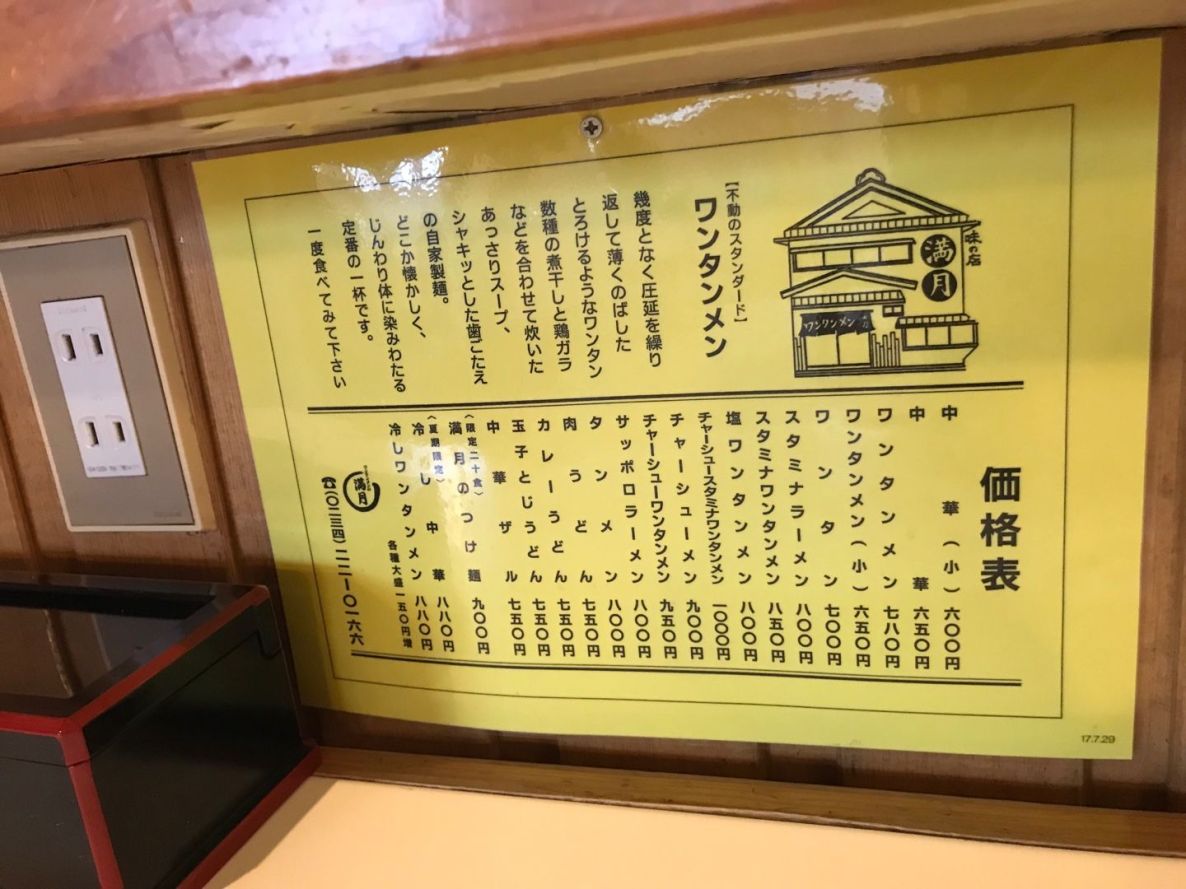 味の店
満月
ワンワンメン
【不動のスタンダード】
ワンタンメン
幾度となく圧延を繰り
返して薄くのばした
とろけるようなワンタン
数種の煮干しと鶏ガラ
などを合わせて炊いた
あっさりスープ、
シャキッとした歯ごたえ
の自家製麺。
どこか懐かしく、
じんわり体に染みわたる
定番の一杯です。
一度食べてみて下さい
価格表
中華(小) 六〇〇円
中華 六五〇円
ワンタンメン 七八〇円
ワンタンメン(小) 六五〇円
ワンタン 七〇〇円
スタミナラーメン 八〇〇円
スタミナワンタンメン 八五〇円
塩ワンタンメン 八〇〇円
チャーシュースタミナワンタンメン 一〇〇〇円
チャーシューメン 九〇〇円
チャーシューワンタンメン 九五〇円
サッポロラーメン 八〇〇円
タンメン 八〇〇円
肉うどん 七五〇円
カレーうどん 七五〇円
玉子とじうどん 七五〇円
中華ザル 七五〇円
(限定二十食)
満月のつけ麺 九〇〇円
(夏期限定)
冷し中華 八八〇円
冷しワンタンメン 八八〇円
各種大盛一五〇円増
満月
☎(〇二三四)二二ー〇一六六
17.7.29